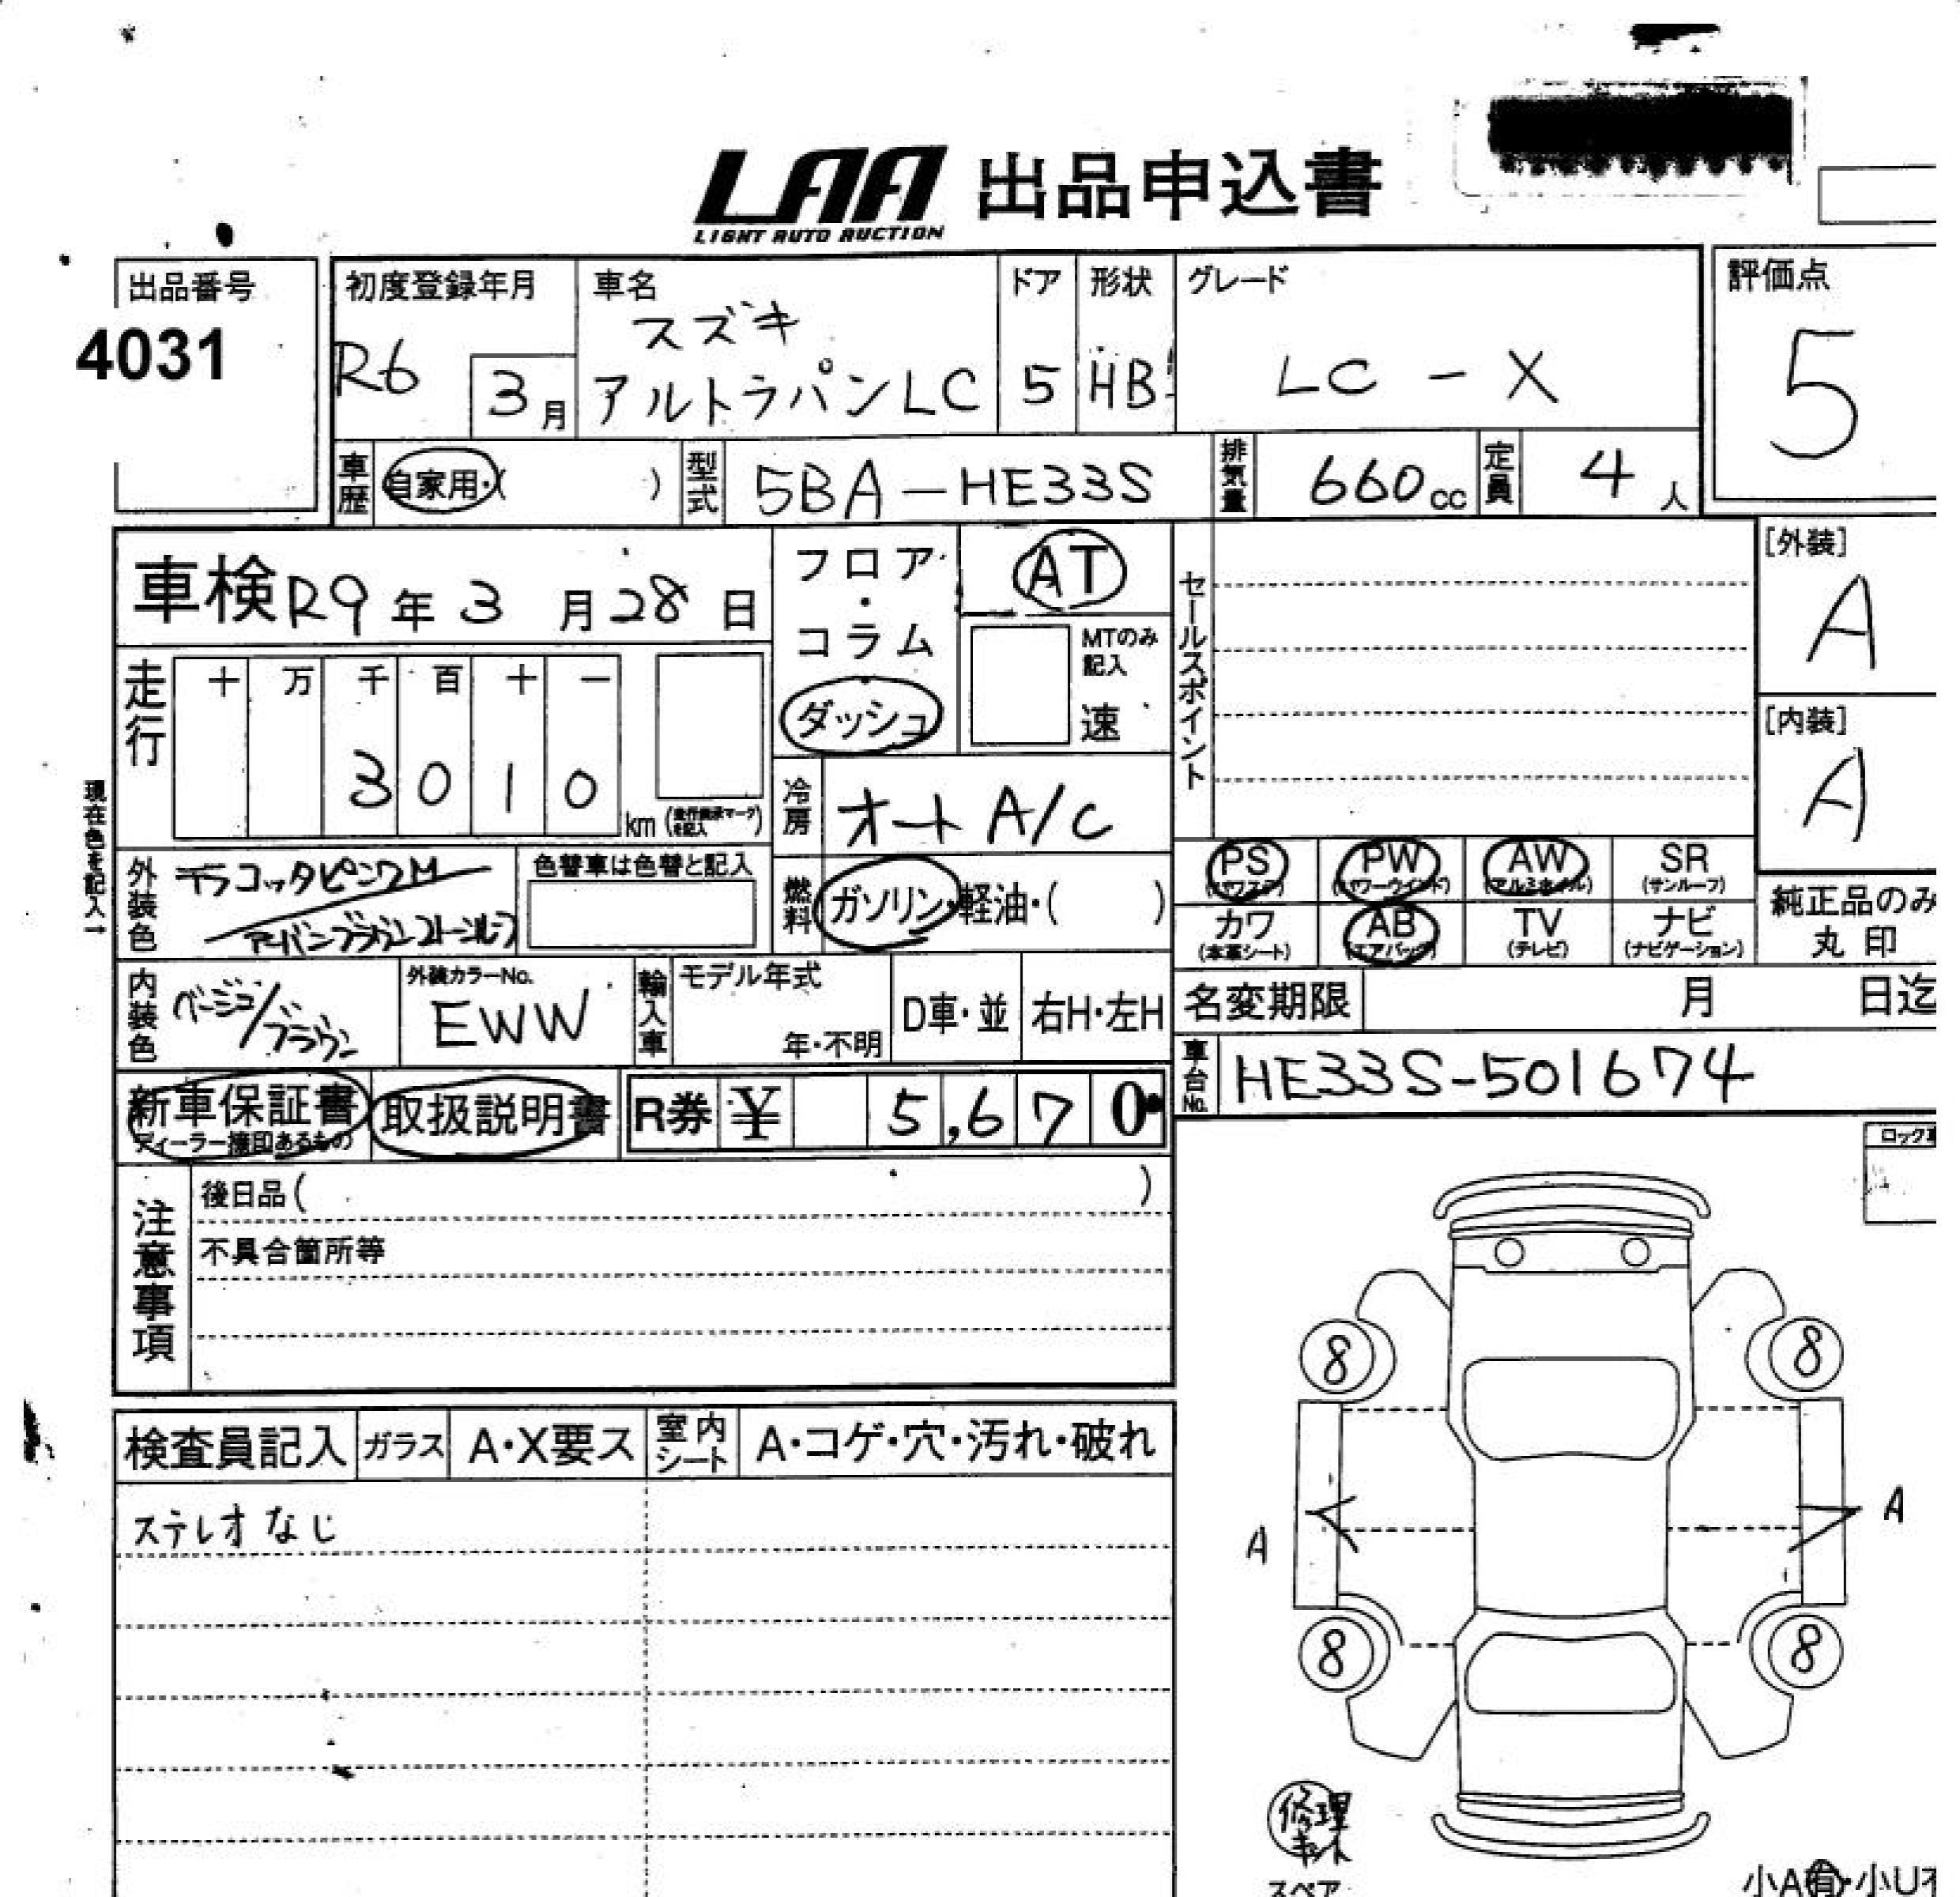 LAA 出品申込書
LIGHT AUTO AUCTION
出品番号
4031
初度登録年月
R6 3月
車名
スズキ
アルトラパンLC
ドア
5
形状
HB
グレード
LC - X
評価点
5
車歴 自家用・( )
型式 5BA-HE33S
排気量 660cc
定員 4人
車検 R9年3月28日
フロア・コラム・ダッシュ
AT
MTのみ記入
速
セールスポイント
[外装]
A
[内装]
A
走行
十 万 千 百 十 一
3 0 1 0 km
現在色を記入→
冷房 オートA/C
外装色 テラコッタピンクM
アーバンブラウン2トーンルーフ
色替車は色替と記入
燃料 ガソリン・軽油・( )
PS (パワステ)
PW (パワーウインド)
AW (アルミホイル)
SR (サンルーフ)
カワ (本革シート)
AB (エアバッグ)
TV (テレビ)
ナビ (ナビゲーション)
純正品のみ
丸印
内装色 ベージュ/ブラウン
外装カラーNo.
EWW
輸入車
モデル年式
年・不明
D車・並
右H・左H
名変期限 月 日迄
車台No. HE33S-501674
新車保証書
ディーラー捺印あるもの
取扱説明書
R券 ¥ 5,670
注意事項
後日品( )
不具合箇所等
検査員記入 ガラス A・X要ス 室内シート A・コゲ・穴・汚れ・破れ
ステレオなし
8 8
A A
8 8
修理キット
スペア
小A有・小U